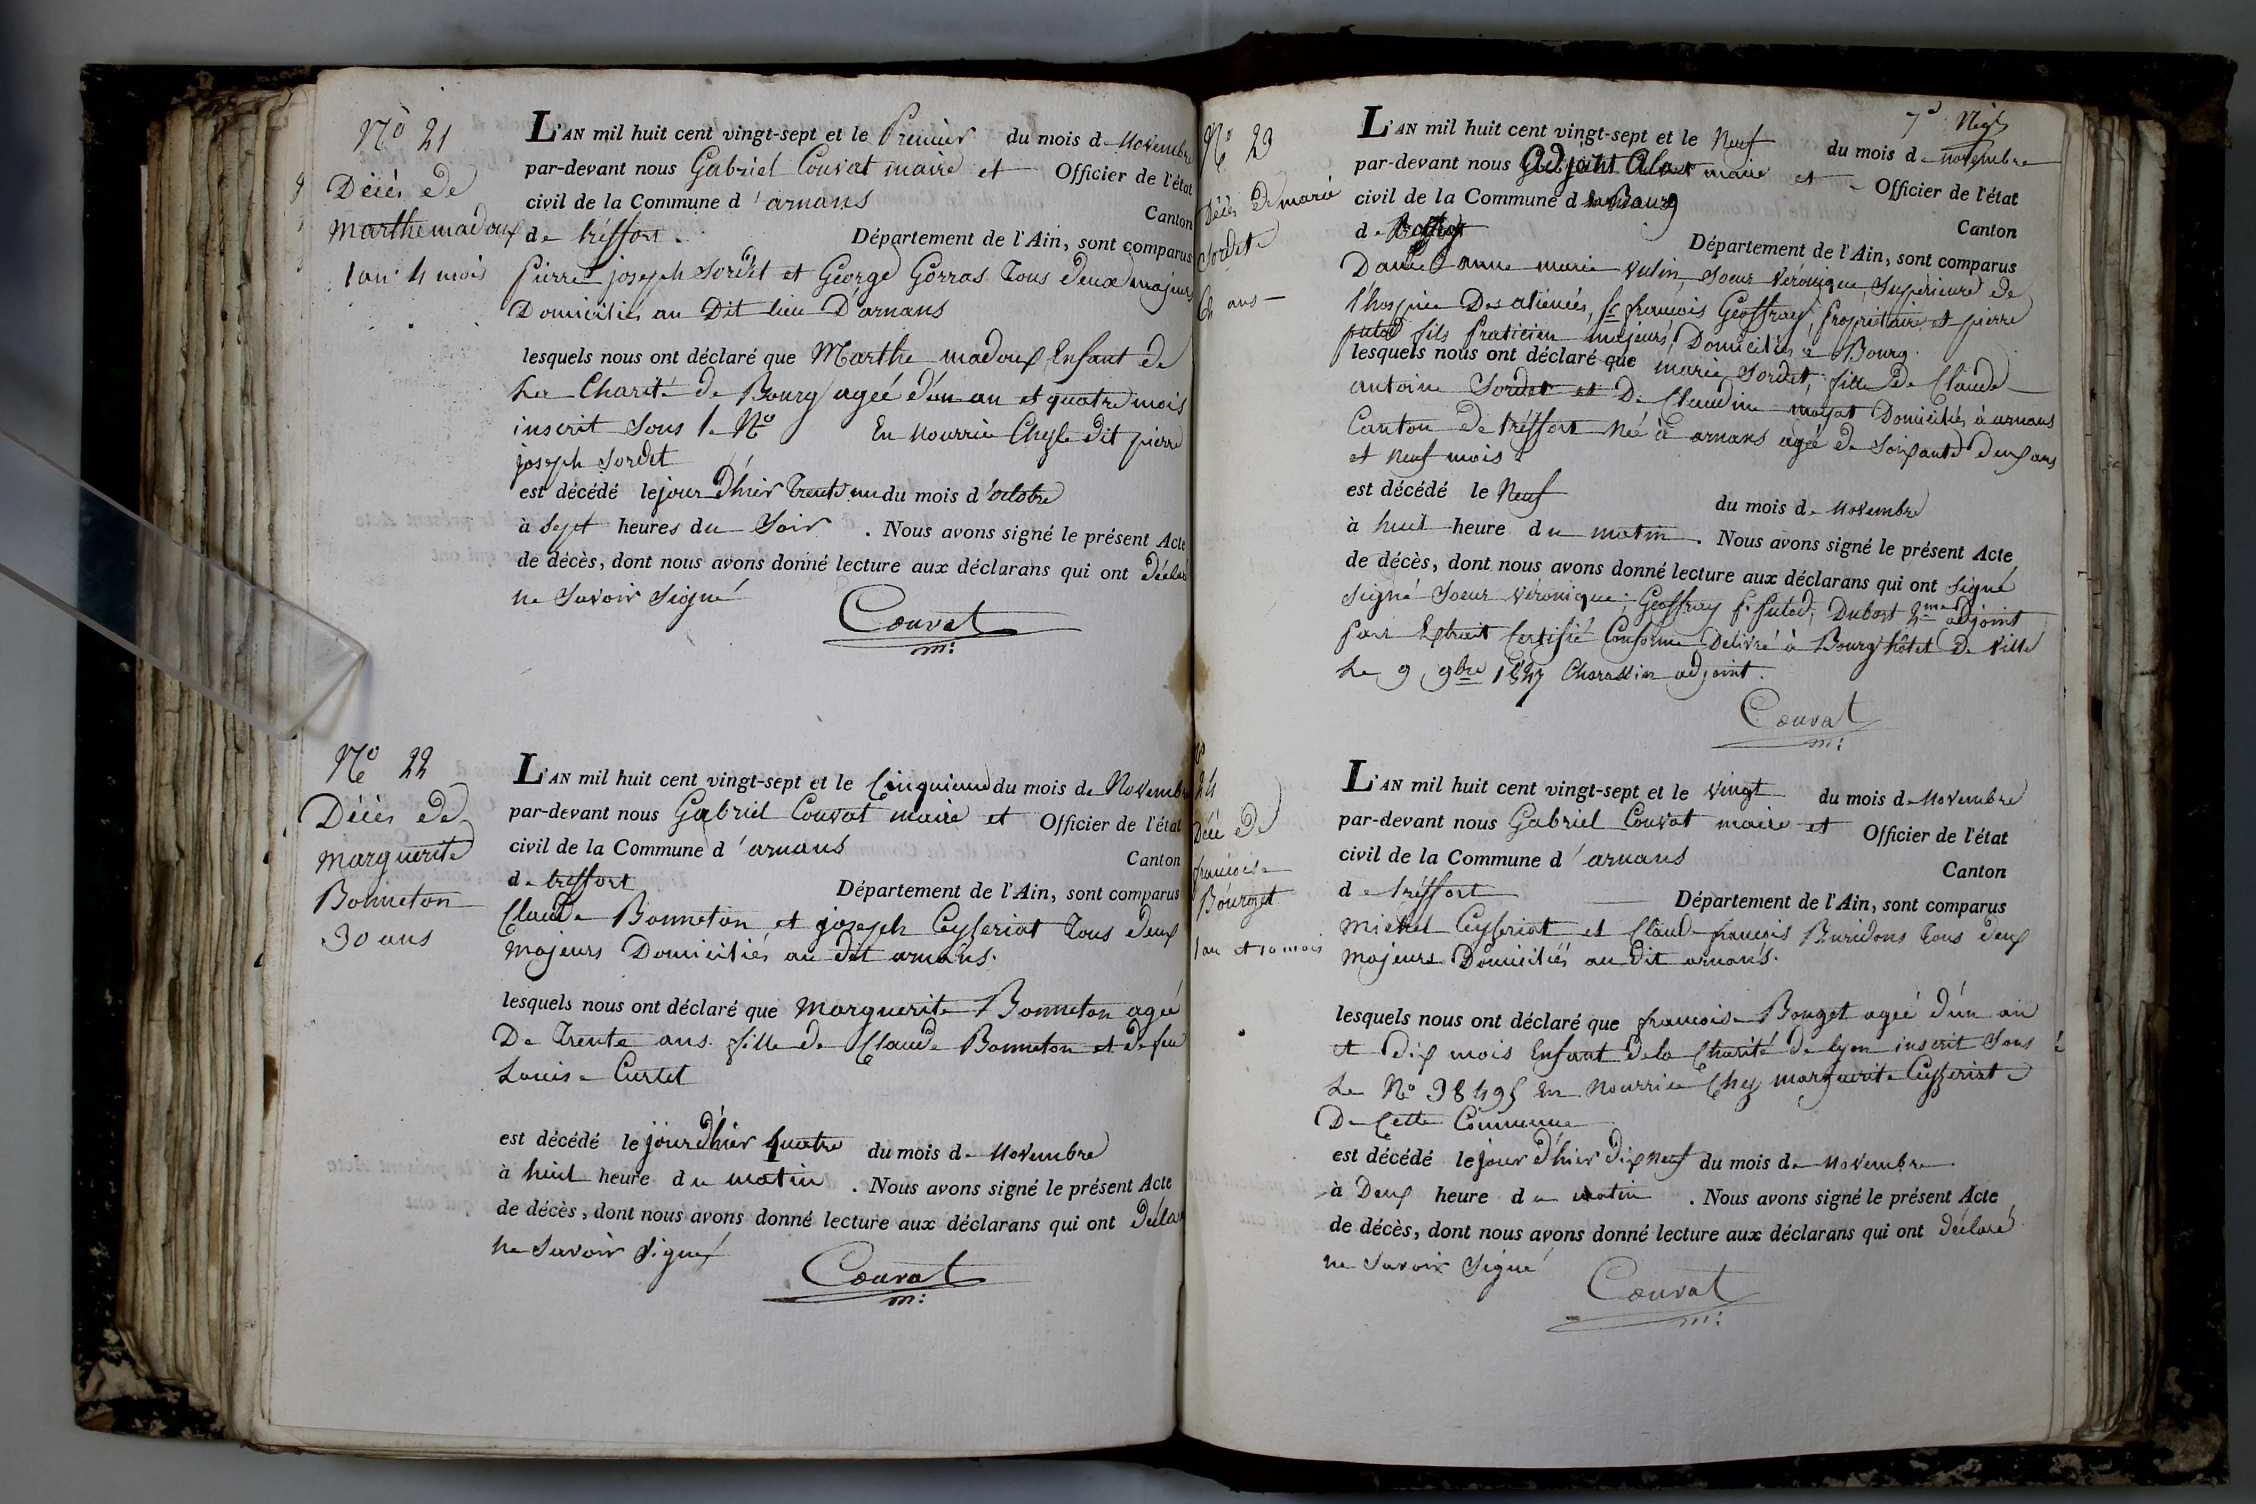 No 21
Décès de
Marthe madoux
1 an 4 mois
L'AN mil huit cent vingt-sept et le Premier du mois de Novembre
par-devant nous Gabriel Couvat maire et Officier de l'état
civil de la Commune d'arnans Canton
de tréffort. Département de l'Ain, sont comparus
Pierre joseph Sordet et George Gorras Tous deux majeurs
Domiciliés au Dit lieu D'arnans
lesquels nous ont déclaré que Marthe madoux Enfant de
La Charité de Bourg agée d'un an et quatre mois
inscrit Sous le No En Nourrice Chez le dit pierre
joseph Sordet
est décédé le jour d'hier Trente un du mois d'octobre
à Sept heures du Soir. Nous avons signé le présent Acte
de décès, dont nous avons donné lecture aux déclarans qui ont déclaré
ne Savoir Signé
Couvat
m:
No 22
Décès de
marguerite
Bonneton
30 ans
L'AN mil huit cent vingt-sept et le Cinquieme du mois de Novembre
par-devant nous Gabriel Couvat maire et Officier de l'état
civil de la Commune d'arnans Canton
de treffort Département de l'Ain, sont comparus
Claude Bonneton et joseph Ceyseriat Tous deux
majeurs Domiciliés au dit arnans.
lesquels nous ont déclaré que marguerite Bonneton agée
De Trente ans fille de Claude Bonneton et de feu
Louise Curtet
est décédé le jour d'hier quatre du mois de Novembre
à huit heure du matin. Nous avons signé le présent Acte
de décès, dont nous avons donné lecture aux déclarans qui ont déclaré
ne Savoir Signé
Couvat
m:
No 23
Décès De marie
Sordet
62 ans
L'AN mil huit cent vingt-sept et le Neuf du mois de novembre
par-devant nous Adjoint maire et Officier de l'état
civil de la Commune d Bourg Canton
d Département de l'Ain, sont comparus
Dame anne marie Vulin, Soeur Véronique, Supérieure de
l'hospice Des aliénés, Sr. françois Geoffray, Propriétaire et pierre
Putod fils Praticien majeurs, Domiciliés à Bourg.
lesquels nous ont déclaré que marie Sordet, fille de Claude
antoine Sordet et De Claudine mayat Domiciliés à arnans
Canton de tréffort Née à arnans agée de Soixante deux ans
et Neuf mois
est décédé le Neuf du mois de Novembre
à huit heure du matin. Nous avons signé le présent Acte
de décès, dont nous avons donné lecture aux déclarans qui ont Signé
Signé Soeur Véronique; Geoffray P. Putod; Dubost 2me adjoint
Pour Extrait Certifié Conforme Delivré à Bourg hôtel De Ville
Le 9 9bre 1827 Charassin adjoint.
Couvat
m:
No
24
Décè de
françoise
Bourget
1 an et 10 mois
L'AN mil huit cent vingt-sept et le vingt du mois de Novembre
par-devant nous Gabriel Couvat maire et Officier de l'état
civil de la Commune d'arnans Canton
de tréffort Département de l'Ain, sont comparus
Michel Ceyseriat et Claude françois Buridons Tous deux
majeurs Domiciliés au dit arnans.
lesquels nous ont déclaré que françoise Bouget agée d'un an
et dix mois Enfant de la Charité de Lyon inscrit Sous
Le No 38495 En Nourrice Chez marguerite Ceyseriat
De Cette Commune
est décédé le jour d'hier dix neuf du mois de Novembre
à Deux heure du matin. Nous avons signé le présent Acte
de décès, dont nous avons donné lecture aux déclarans qui ont déclaré
ne Savoir Signé
Couvat
m: